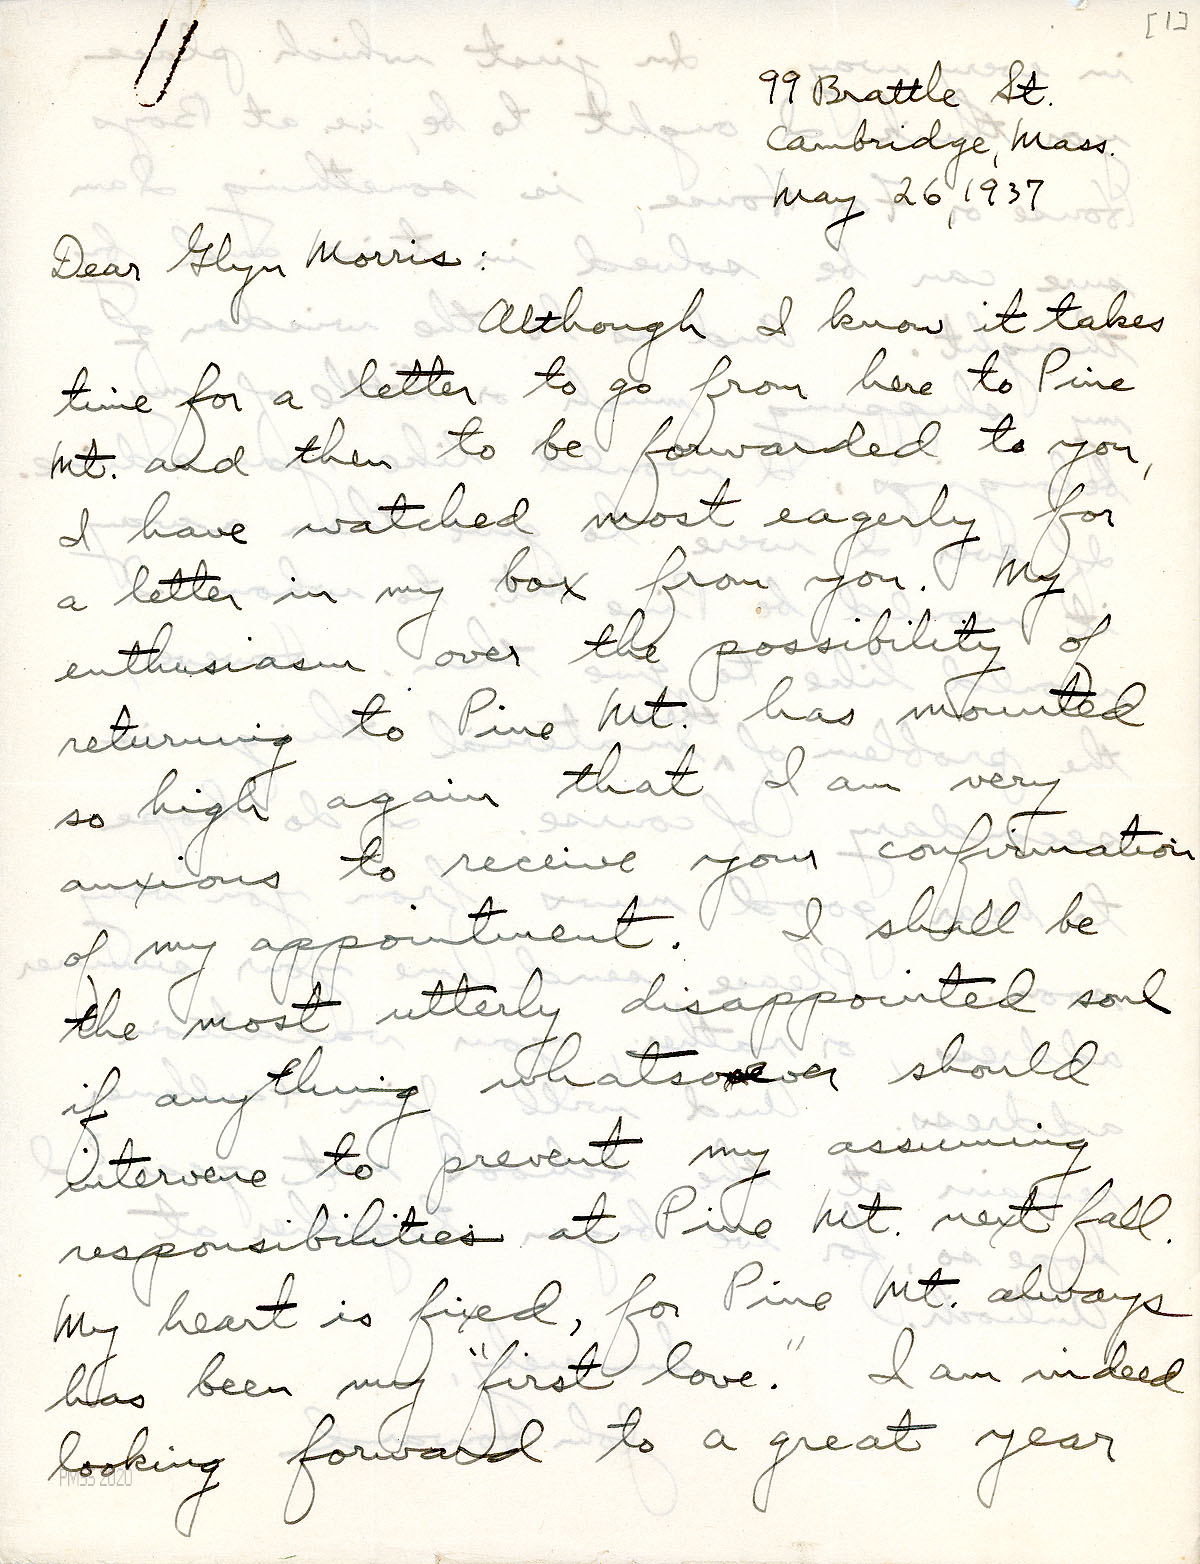 [1]
99 Brattle St.
Cambridge, Mass.
May 26, 1937
Dear Glyn Morris:
Although I know it takes
time for a letter to go from here to Pine
Mt. and then to be forwarded to you,
I have watched most eagerly for
a letter in my box from you. My
enthusiasm over the possibility of
returning to Pine Mt. has mounted
so high again that I am very
anxious to receive your confirmation
of my appointment. I shall be
the most utterly disappointed soul
if anything whatsoever should
intervene to prevent my assuming
responsibilities at Pine Mt. next fall.
My heart is fixed, for Pine Mt. always
has been my "first love." I am indeed
looking forward to a great year
PMSS 2020